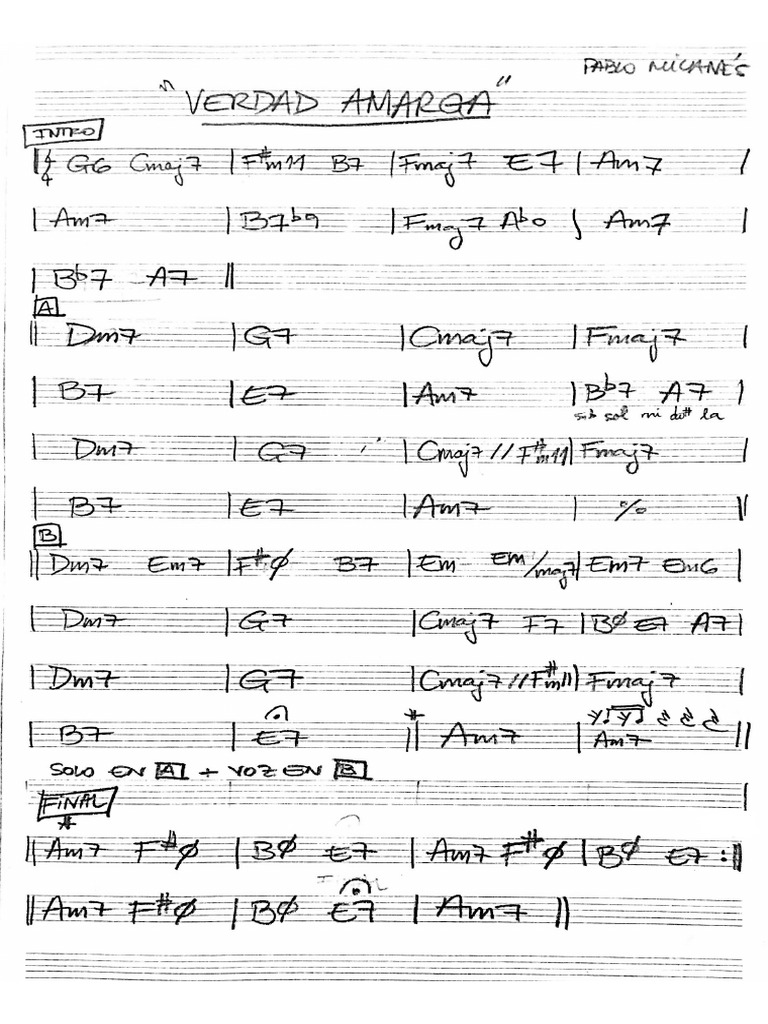 PABLO MILANÉS
"VERDAD AMARGA"
INTRO
| 4/4 G6 Cmaj7 | F#m11 B7 | Fmaj7 E7 | Am7 |
| Am7 | B7b9 | Fmaj7 Abo | Am7 |
| Bb7 A7 ||
A
|| Dm7 | G7 | Cmaj7 | Fmaj7 |
| B7 | E7 | Am7 | Bb7 A7 |
sib sol mi do# la
| Dm7 | G7 | Cmaj7 // F#m11 | Fmaj7 |
| B7 | E7 | Am7 | % ||
B
|| Dm7 Em7 | F#ø B7 | Em Em/maj7 | Em7 Em6 |
| Dm7 | G7 | Cmaj7 F7 | Bø E7 A7 |
| Dm7 | G7 | Cmaj7 // F#m11 | Fmaj7 |
| B7 | E7 || Am7 | Am7 ||
SOLO EN A + VOZ EN B
FINAL
|| Am7 F#ø | Bø E7 | Am7 F#ø | Bø E7 :||
|| Am7 F#ø | Bø E7 | Am7 ||